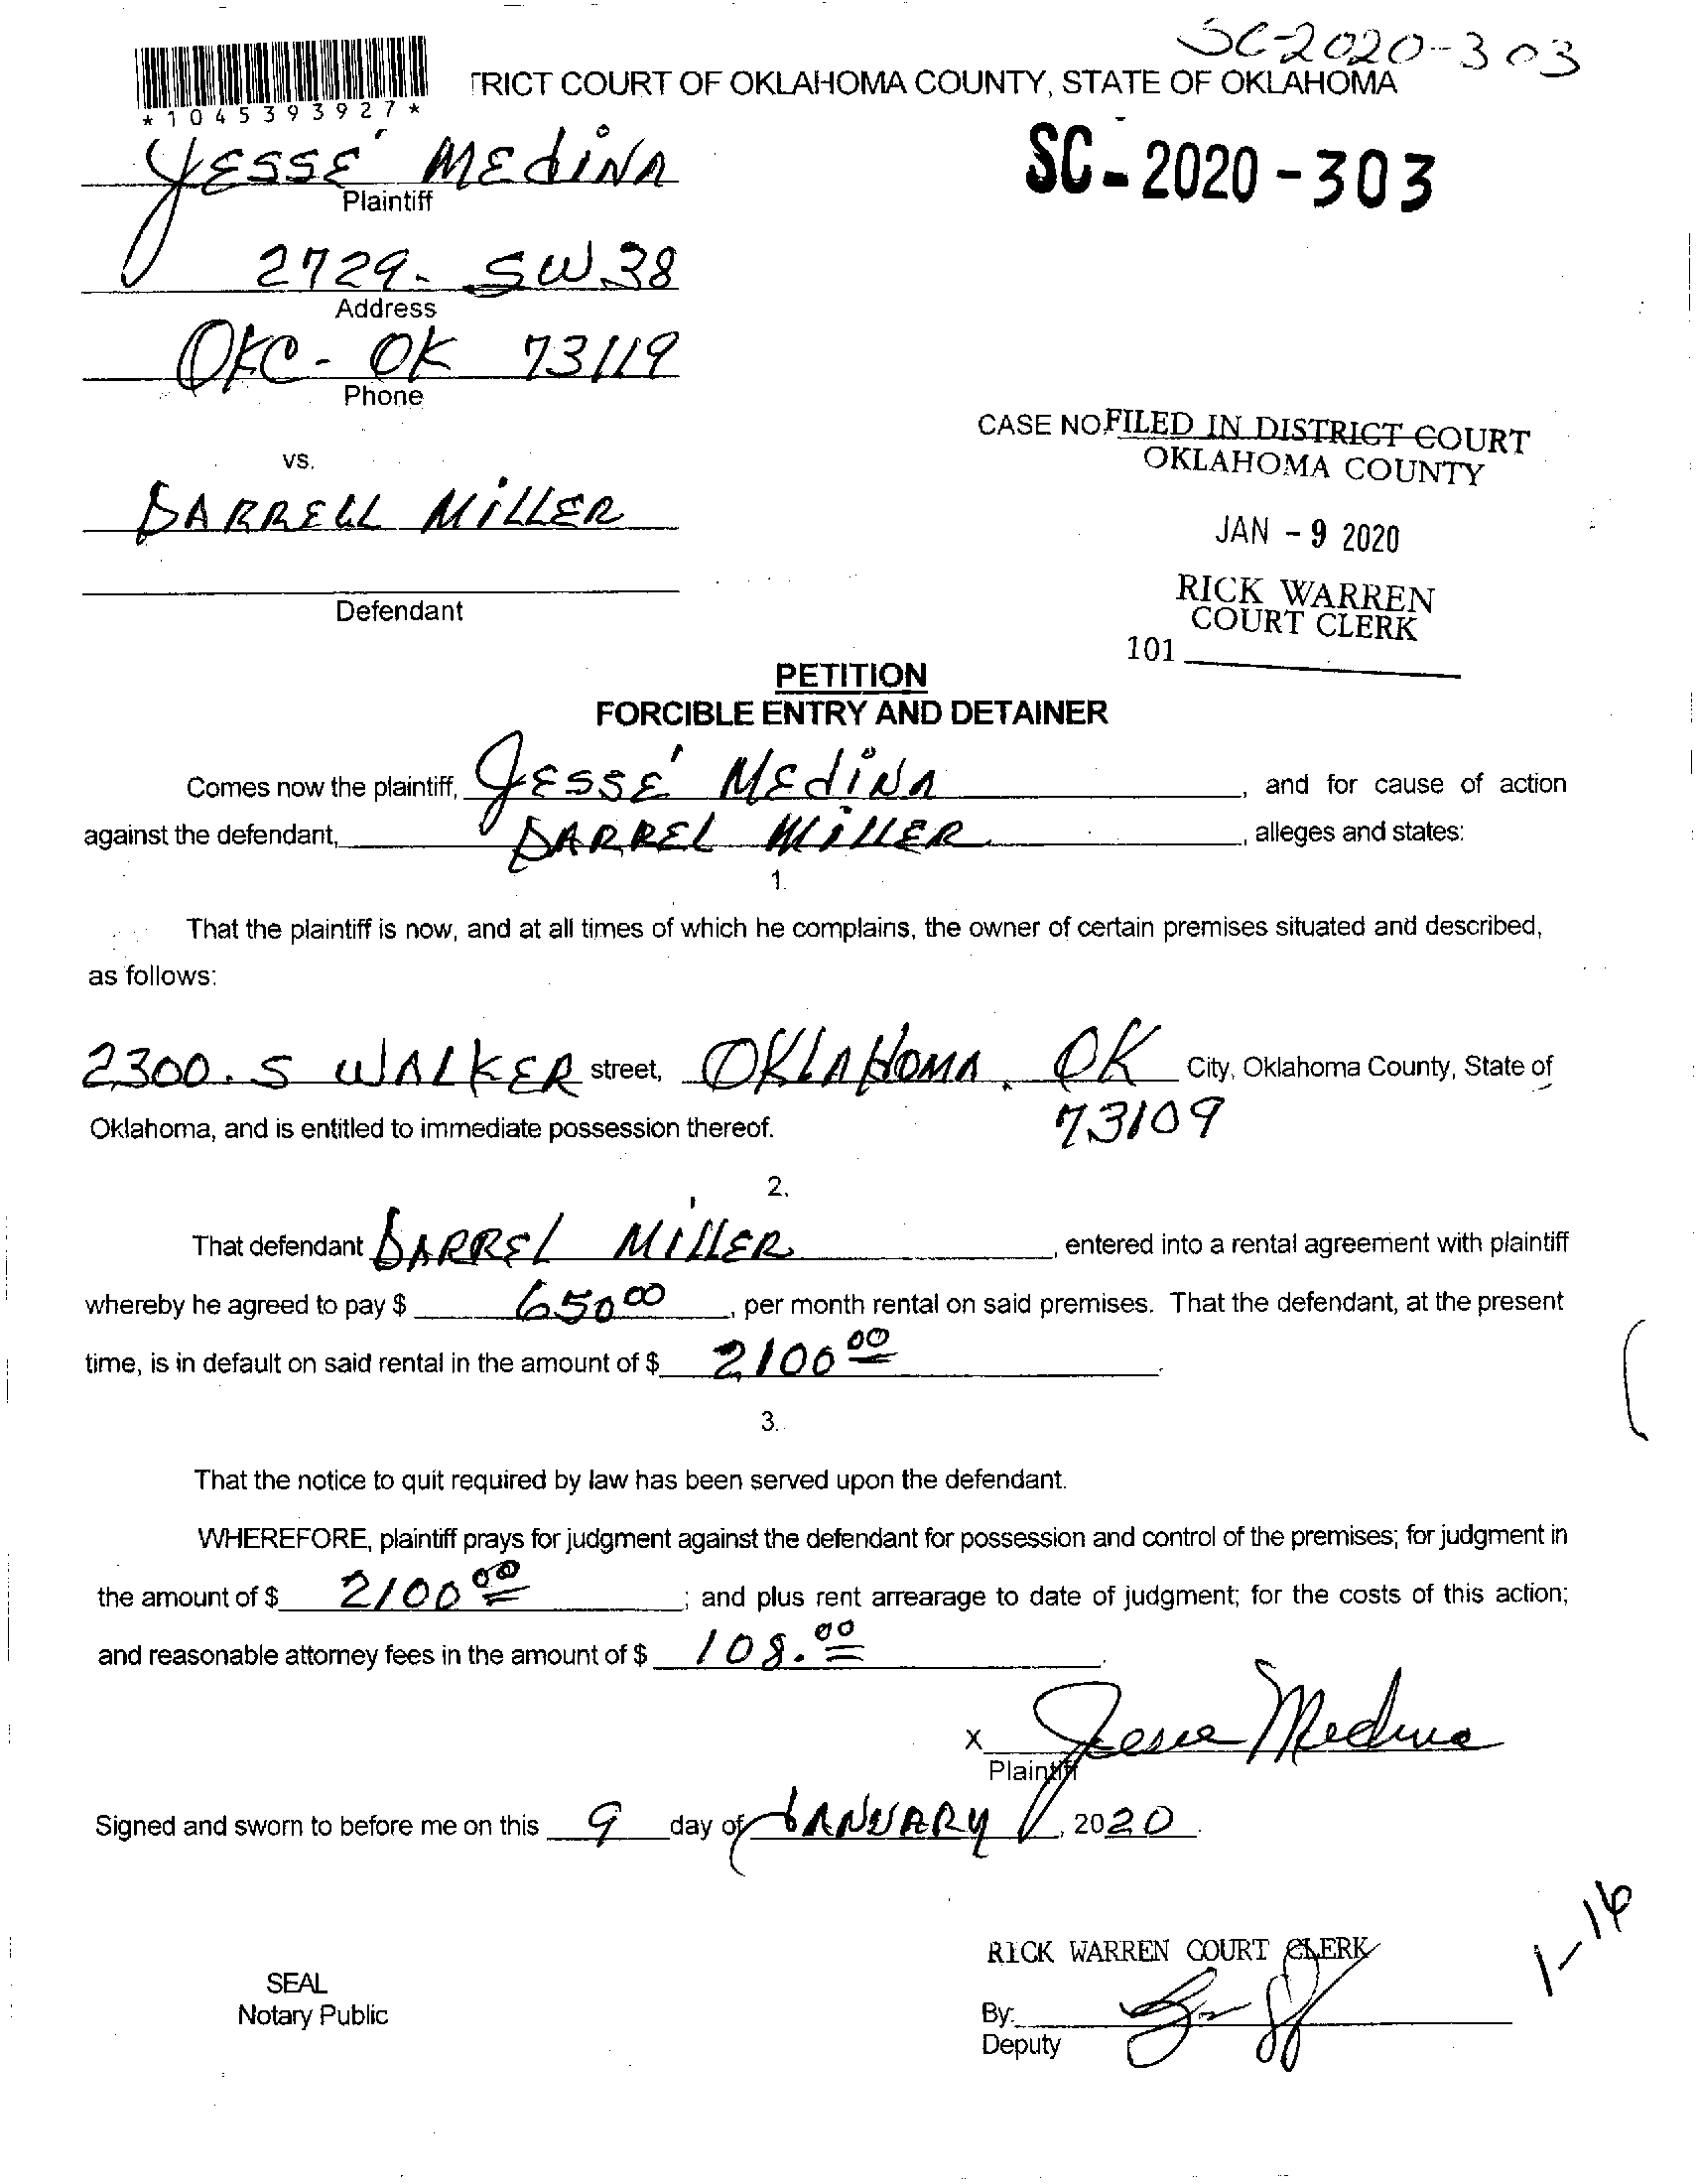 SC-2020-303
TRICT COURT OF OKLAHOMA COUNTY, STATE OF OKLAHOMA
*1045393927*
JESSE' MEDINA
Plaintiff
SC-2020-303
2729- SW 38
Address
OKC- OK 73119
Phone
CASE NO.
FILED IN DISTRICT COURT
OKLAHOMA COUNTY
vs.
DARRELL MILLER
JAN - 9 2020
Defendant
RICK WARREN
COURT CLERK
101
PETITION
FORCIBLE ENTRY AND DETAINER
Comes now the plaintiff, JESSE' MEDINA, and for cause of action
against the defendant, DARREL MILLER, alleges and states:
1.
That the plaintiff is now, and at all times of which he complains, the owner of certain premises situated and described,
as follows:
2300. S WALKER street, OKLAHOMA. OK City, Oklahoma County, State of
Oklahoma, and is entitled to immediate possession thereof. 73109
2.
That defendant DARREL MILLER, entered into a rental agreement with plaintiff
whereby he agreed to pay $ 650 00, per month rental on said premises. That the defendant, at the present
time, is in default on said rental in the amount of $ 2100 00.
3.
That the notice to quit required by law has been served upon the defendant.
WHEREFORE, plaintiff prays for judgment against the defendant for possession and control of the premises; for judgment in
the amount of $ 2100 00; and plus rent arrearage to date of judgment; for the costs of this action;
and reasonable attorney fees in the amount of $ 108.00.
X Jesse Medina
Plaintiff
Signed and sworn to before me on this 9 day of JANUARY, 2020.
1-16
RICK WARREN COURT CLERK
SEAL
Notary Public
By:
Deputy